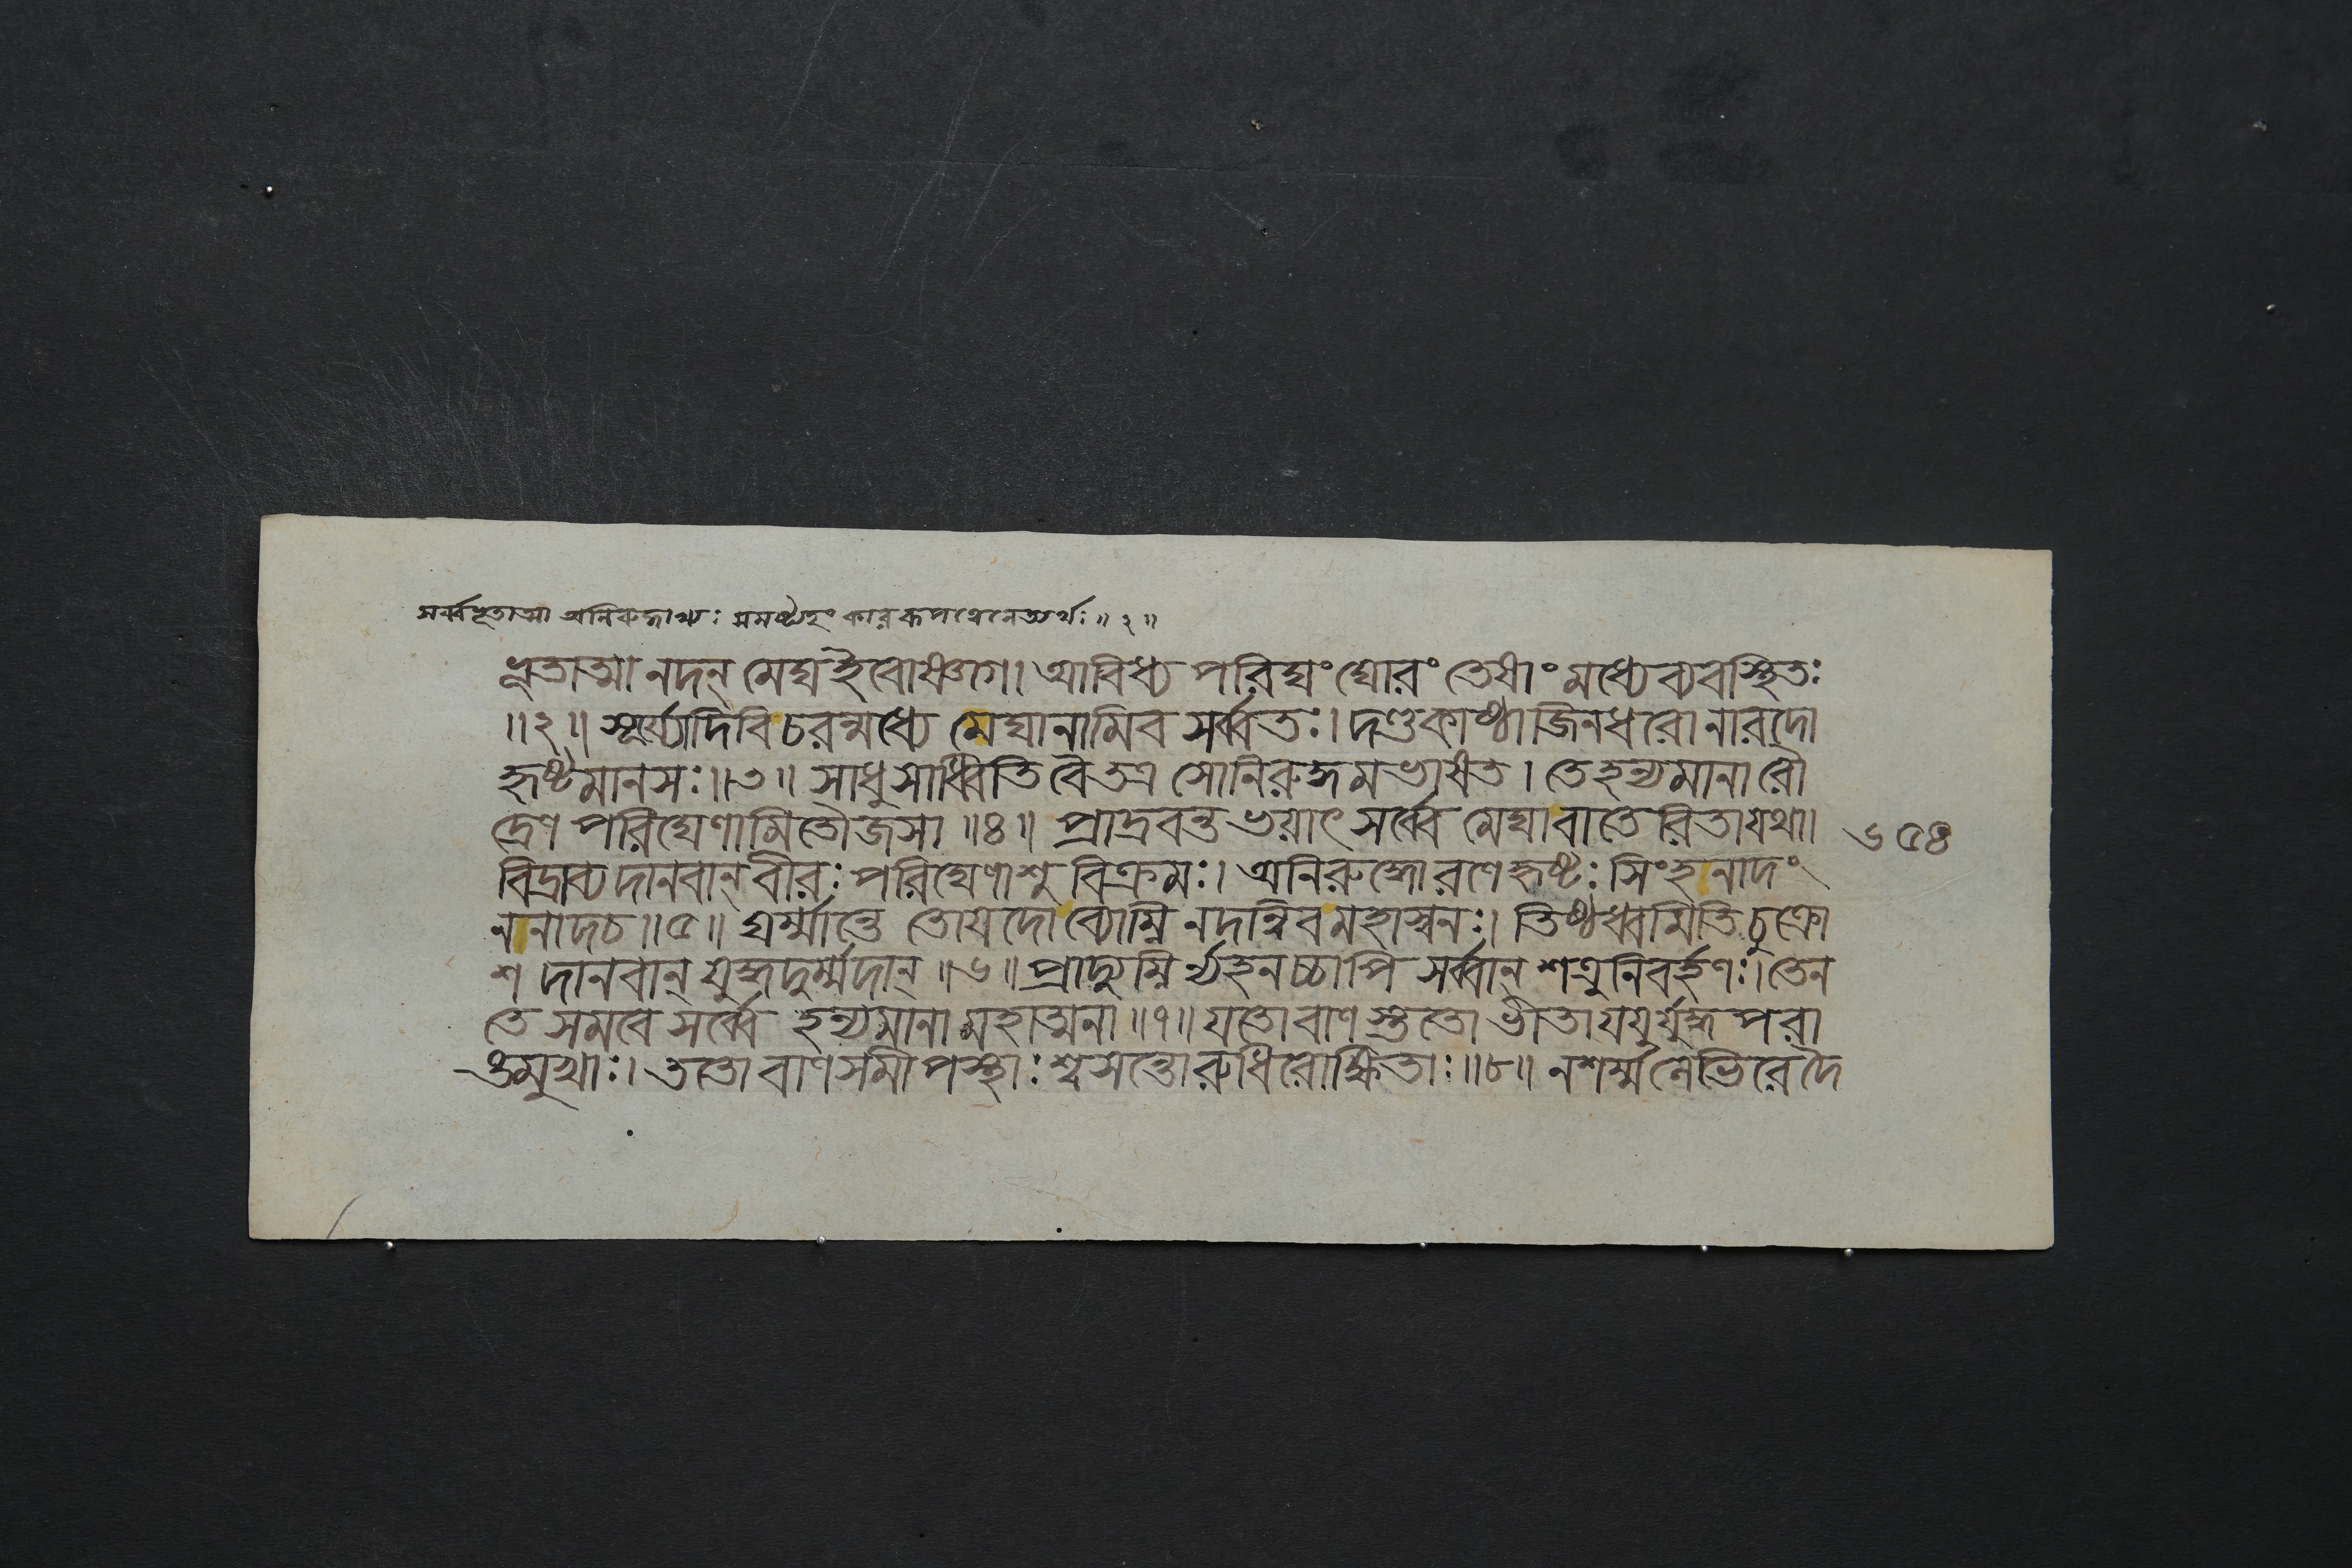 সর্ব্বভূতাত্মা অনিরুদ্ধাখ্যঃ সমষ্ট্যহংকাররূপত্বেনেত্যর্থঃ॥২॥
ভূতাত্মা নদন্ মেঘ ইবোষ্ণগে। আবিধ্য পরিঘং ঘোরং তেষাং মধ্যে ব্যবস্থিতঃ
॥২॥ সূর্য্যোদিবিচরন্মধ্যে মেঘানামিব সর্ব্বতঃ। দণ্ডকাষ্ঠাজিনধরো নারদো
হৃষ্টমানসঃ॥৩॥ সাধুসাধ্বিতি বৈ তত্র সোনিরুদ্ধমভাষত। তে হন্যমানা রৌ
দ্রেণ পরিঘেণামিতৌজসা॥৪॥ প্রাদ্রবন্ত ভয়াৎ সর্ব্বে মেঘা বাতেরিতা যথা।
বিদ্রাব্য দানবান্ বীরঃ পরিঘেণাশুবিক্রমঃ। অনিরুদ্ধো রণে হৃষ্টঃ সিংহনাদং
ননাদ চ॥৫॥ ঘর্ম্মান্তে তোয়দো ব্যোম্নি নদন্নিব মহাস্বনঃ। তিষ্ঠধ্বমিতি চুক্রো
শ দানবান্ যুদ্ধদুর্ম্মদান্॥৬॥ প্রাদ্যুম্নির্ব্যহনচ্চাপি সর্ব্বান্ শত্রুনিবর্হণঃ। তেন
তে সমরে সর্ব্বে হন্যমানা মহাত্মনা॥৭॥ যতো বাণস্ততো ভীতা যযুর্যুদ্ধপরা
ঙ্মুখাঃ। ততো বাণসমীপস্থাঃ শ্বসন্তো রুধিরোক্ষিতাঃ॥৮॥ ন শর্ম্ম লেভিরে দৈ
৬৫৪